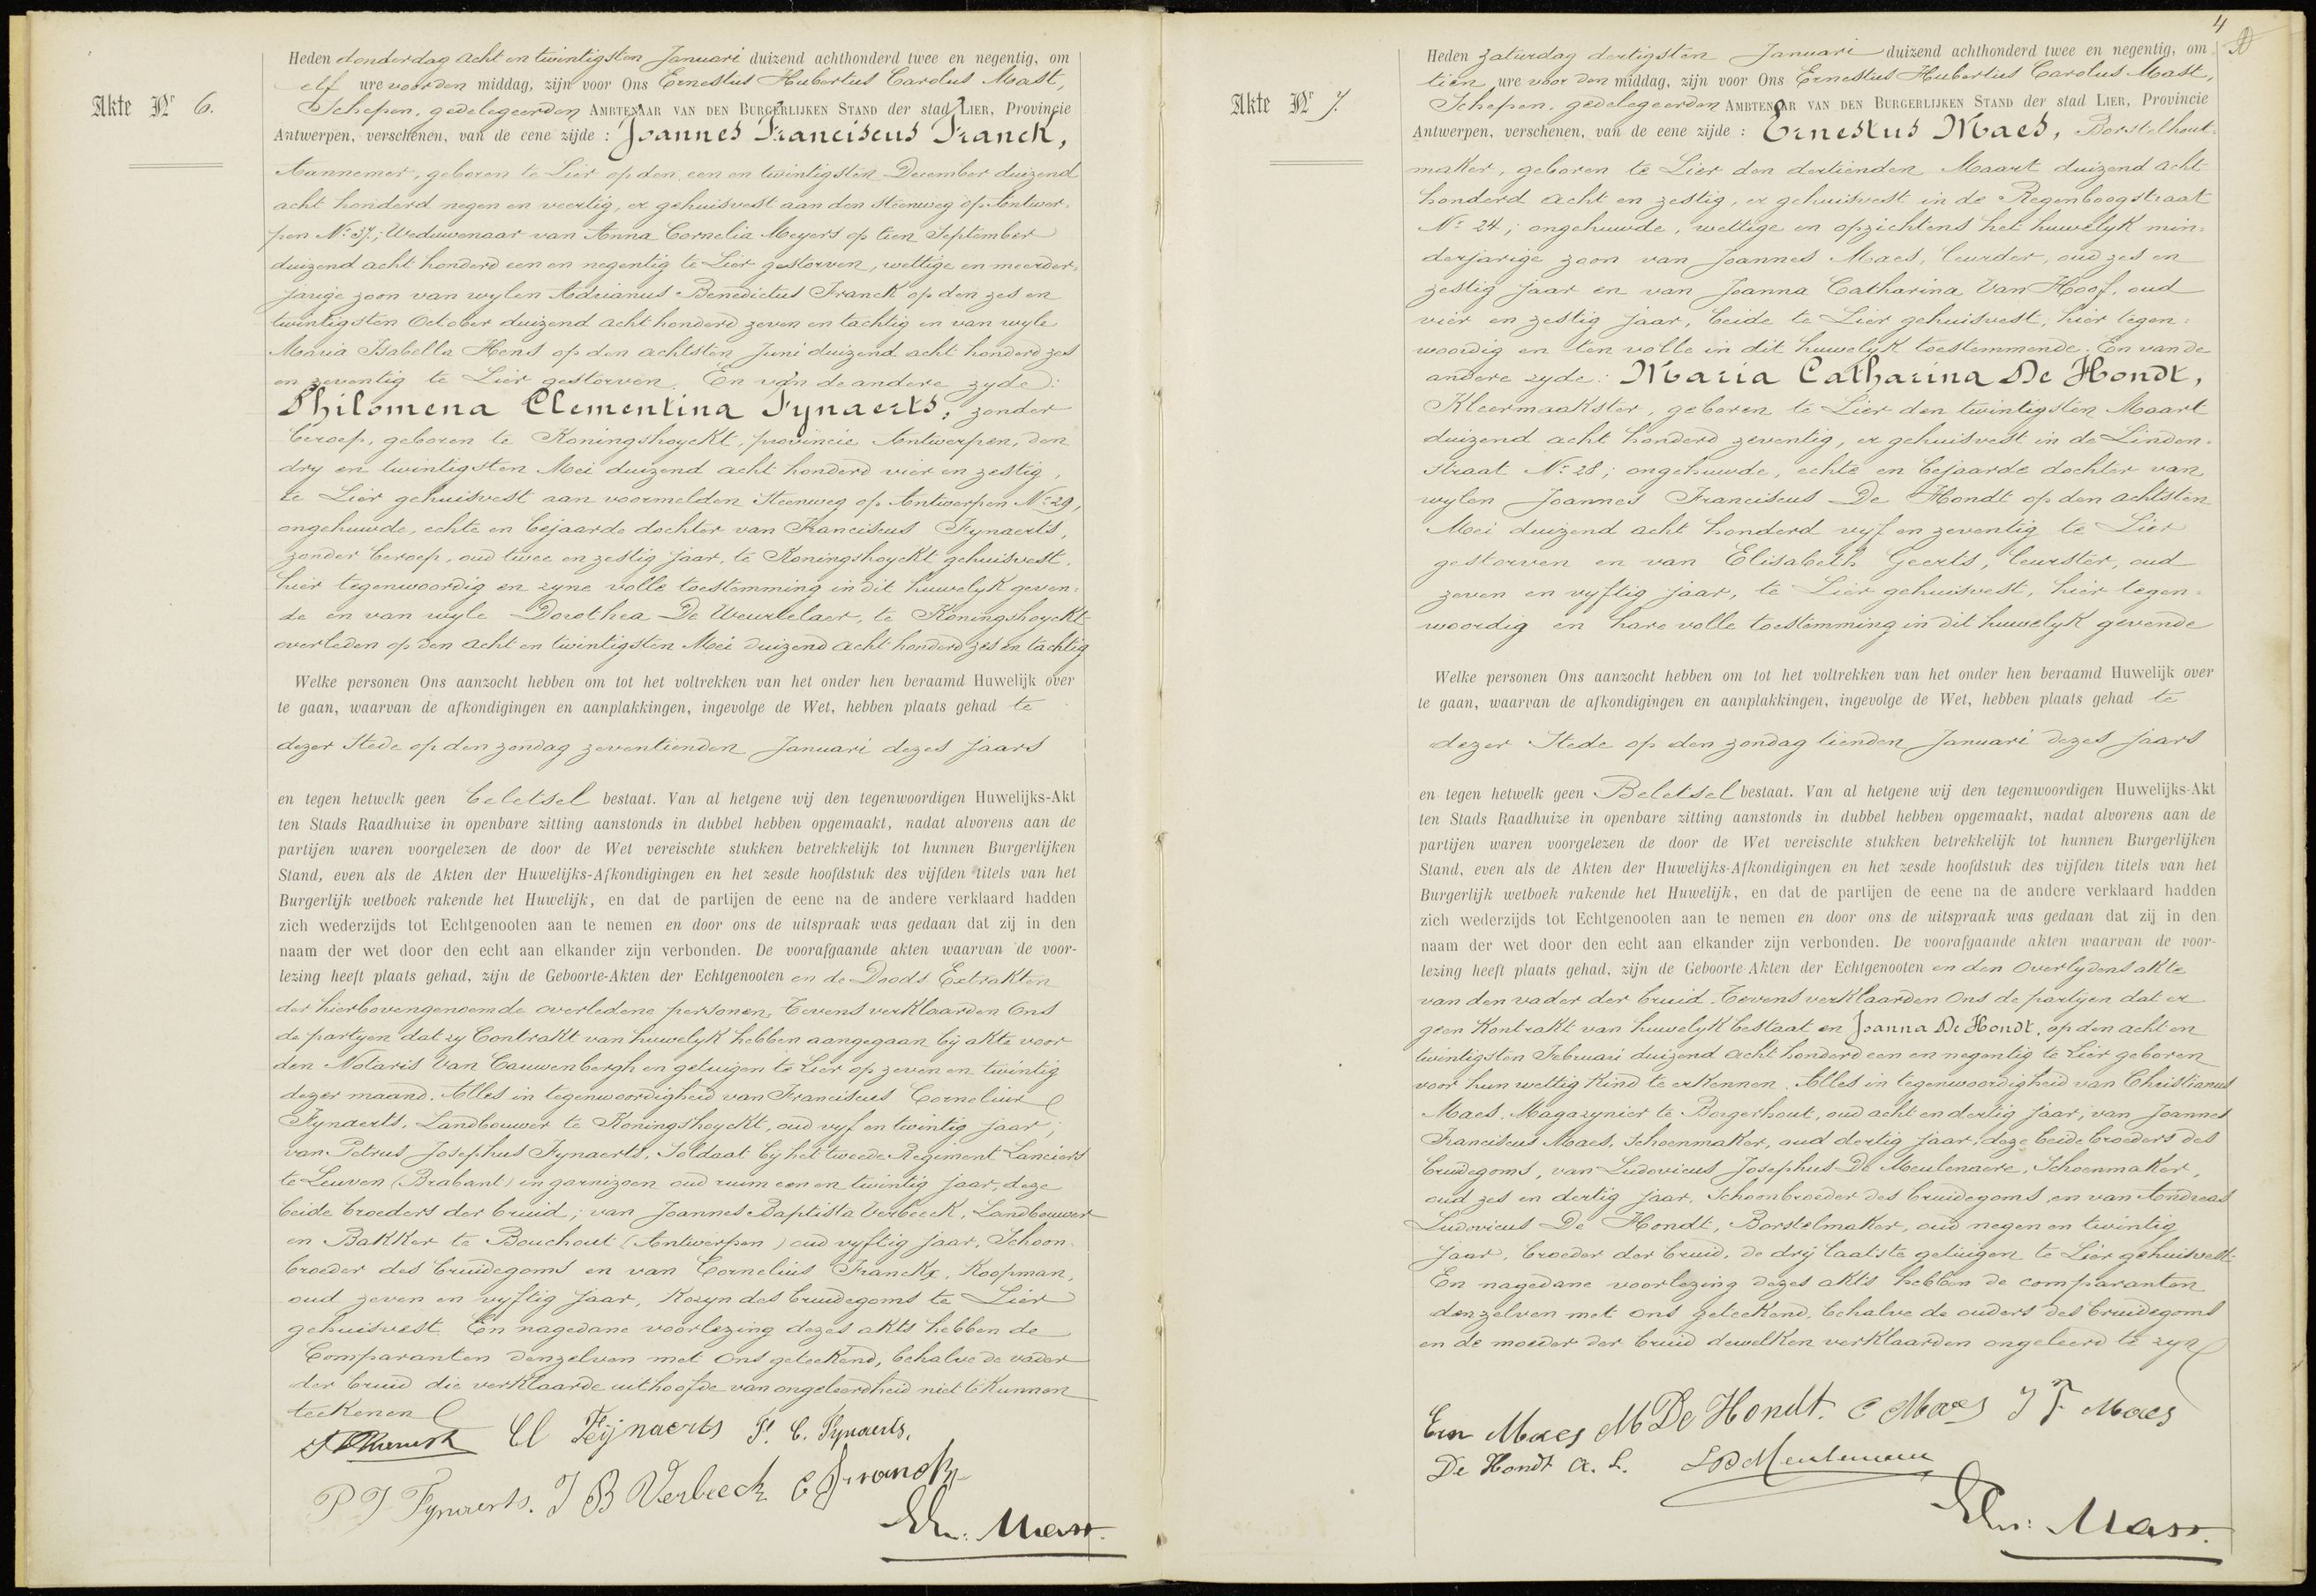 Akte Nr 6.
Heden donderdag acht en twintigsten Januari duizend achthonderd twee en negentig, om
elf ure voor den middag, zijn voor Ons Ernestus Hubertus Carolus Mast,
Schepen, gedelegeerden Ambtenaar van den Burgerlijken Stand der stad Lier, Provincie
Antwerpen, verschenen, van de eene zijde : Joannes Franciscus Franck,
Aannemer, geboren te Lier op den een en twintigsten December duizend
acht honderd negen en veertig, er gehuisvest aan den steenweg op Antwer-
pen No 37; Weduwenaar van Anna Cornelia Meyers op tien September
duizend acht honderd een en negentig te Lier gestorven, wettige en meerder-
jarige zoon van wylen Adrianus Benedictus Franck op den zes en
twintigsten October duizend acht honderd zeven en tachtig en van wyle
Maria Isabella Hens op den achtsten Juni duizend acht honderd zes
en zeventig te Lier gestorven. En van de andere zyde:
Philomena Clementina Fynaerts, zonder
beroep, geboren te Koningshoyckt, provincie Antwerpen, den
dry en twintigsten Mei duizend acht honderd vier en zestig,
te Lier gehuisvest aan voormelden Steenweg op Antwerpen No 29,
ongehuwde, echte en bejaarde dochter van Franciscus Fynaerts,
zonder beroep, oud twee en zestig jaar, te Koningshoyckt gehuisvest,
hier tegenwoordig en zyne volle toestemming in dit huwelyk geven-
de en van wyle Dorothea De Weurtelaer, te Koningshoyckt
overleden op den acht en twintigsten Mei duizend acht honderd zes en tachtig
Welke personen Ons aanzocht hebben om tot het voltrekken van het onder hen beraamd Huwelijk over
te gaan, waarvan de afkondigingen en aanplakkingen, ingevolge de Wet, hebben plaats gehad te
dezer Stede op den zondag zeventienden Januari dezes jaars
en tegen hetwelk geen beletsel bestaat. Van al hetgene wij den tegenwoordigen Huwelijks-Akt
ten Stads Raadhuize in openbare zitting aanstonds in dubbel hebben opgemaakt, nadat alvorens aan de
partijen waren voorgelezen de door de Wet vereischte stukken betrekkelijk tot hunnen Burgerlijken
Stand, even als de Akten der Huwelijks-Afkondigingen en het zesde hoofdstuk des vijfden titels van het
Burgerlijk wetboek rakende het Huwelijk, en dat de partijen de eene na de andere verklaard hadden
zich wederzijds tot Echtgenooten aan te nemen en door ons de uitspraak was gedaan dat zij in den
naam der wet door den echt aan elkander zijn verbonden. De voorafgaande akten waarvan de voor-
lezing heeft plaats gehad, zijn de Geboorte-Akten der Echtgenooten en de Doods Extrakten
der hierbovengenoemde overledene personen, Tevens verklaarden Ons
de partyen dat zy Contrakt van huwelyk hebben aangegaan bij akte voor
den Notaris Van Cauwenbergh en getuigen te Lier op zeven en twintig
dezer maand. Alles in tegenwoordigheid van Franciscus Cornelius
Fynaerts, Landbouwer te Koningshoyckt, oud vyf en twintig jaar;
van Petrus Josephus Fynaerts, Soldaat by het tweede Regiment Lanciers
te Leuven (Brabant) in garnizoen oud ruim een en twintig jaar, deze
beide broeders der bruid; van Joannes Baptista Verbeeck, Landbouwer
en Bakker te Bouchout (Antwerpen) oud vyftig jaar, Schoon-
broeder des bruidegoms en van Cornelius Franckx, Koopman,
oud zeven en vyftig jaar, Kozyn des bruidegoms te Lier
gehuisvest. En nagedane voorlezing dezes akts hebben de
Comparanten denzelven met Ons geteekend, behalve de vader
der bruid die verklaarde uithoofde van ongeleerdheid niet te kunnen
teekenen
Cl Feijnaerts F. C. Fynaerts,
P J Fynaerts. J B Verbeeck C Franckx
Ern. Mast.
4
Akte Nr 7.
Heden zaturdag dertigsten Januari duizend achthonderd twee en negentig, om
tien ure voor den middag, zijn voor Ons Ernestus Hubertus Carolus Mast,
Schepen, gedelegeerden Ambtenaar van den Burgerlijken Stand der stad Lier, Provincie
Antwerpen, verschenen, van de eene zijde : Ernestus Maes, Borstelhout-
maker, geboren te Lier den dertienden Maart duizend acht
honderd acht en zestig, er gehuisvest in de Regenboogstraat
No 24; ongehuwde, wettige en opzichtens het huwelyk min-
derjarige zoon van Joannes Maes, leurder, oud zes en
zestig jaar en van Joanna Catharina Van Hoof, oud
vier en zestig jaar, beide te Lier gehuisvest, hier tegen-
woordig en ten volle in dit huwelyk toestemmende. En van de
andere zyde: Maria Catharina De Hondt,
Kleermaakster, geboren te Lier den twintigsten Maart
duizend acht honderd zeventig, er gehuisvest in de Linden-
straat No 28; ongehuwde, echte en bejaarde dochter van
wylen Joannes Franciscus De Hondt op den achtsten
Mei duizend acht honderd vyf en zeventig te Lier
gestorven en van Elisabeth Geerts, leurster, oud
zeven en vyftig jaar, te Lier gehuisvest, hier tegen-
woordig en hare volle toestemming in dit huwelyk gevende
Welke personen Ons aanzocht hebben om tot het voltrekken van het onder hen beraamd Huwelijk over
te gaan, waarvan de afkondigingen en aanplakkingen, ingevolge de Wet, hebben plaats gehad te
dezer Stede op den zondag tienden Januari dezes jaars
en tegen hetwelk geen Beletsel bestaat. Van al hetgene wij den tegenwoordigen Huwelijks-Akt
ten Stads Raadhuize in openbare zitting aanstonds in dubbel hebben opgemaakt, nadat alvorens aan de
partijen waren voorgelezen de door de Wet vereischte stukken betrekkelijk tot hunnen Burgerlijken
Stand, even als de Akten der Huwelijks-Afkondigingen en het zesde hoofdstuk des vijfden titels van het
Burgerlijk wetboek rakende het Huwelijk, en dat de partijen de eene na de andere verklaard hadden
zich wederzijds tot Echtgenooten aan te nemen en door ons de uitspraak was gedaan dat zij in den
naam der wet door den echt aan elkander zijn verbonden. De voorafgaande akten waarvan de voor-
lezing heeft plaats gehad, zijn de Geboorte-Akten der Echtgenooten en den Overlydensakte
van den vader der bruid. Tevens verklaarden Ons de partyen dat er
geen Kontrakt van huwelyk bestaat en Joanna De Hondt, op den acht en
twintigsten Februari duizend acht honderd een en negentig te Lier geboren
voor hun wettig Kind te erkennen. Alles in tegenwoordigheid van Christianus
Maes, Magazynier te Borgerhout, oud acht en dertig jaar, van Joannes
Franciscus Maes, Schoenmaker, oud dertig jaar, deze beide broeders des
bruidegoms, van Ludovicus Josephus De Meulenaere, Schoenmaker,
oud zes en dertig jaar, Schoonbroeder des bruidegoms en van Andreas
Ludovicus De Hondt, Borstelmaker, oud negen en twintig
jaar, broeder der bruid, de drij laatste getuigen te Lier gehuisvest.
En nagedane voorlezing dezes akts hebben de comparanten
denzelven met ons geteekend, behalve de ouders des bruidegoms
en de moeder der bruid dewelken verklaarden ongeleerd te zyn
Ern Maes M De Hondt. C Maes J F Maes
De Hondt A. L. LDMeulenaere
Ern. Mast.